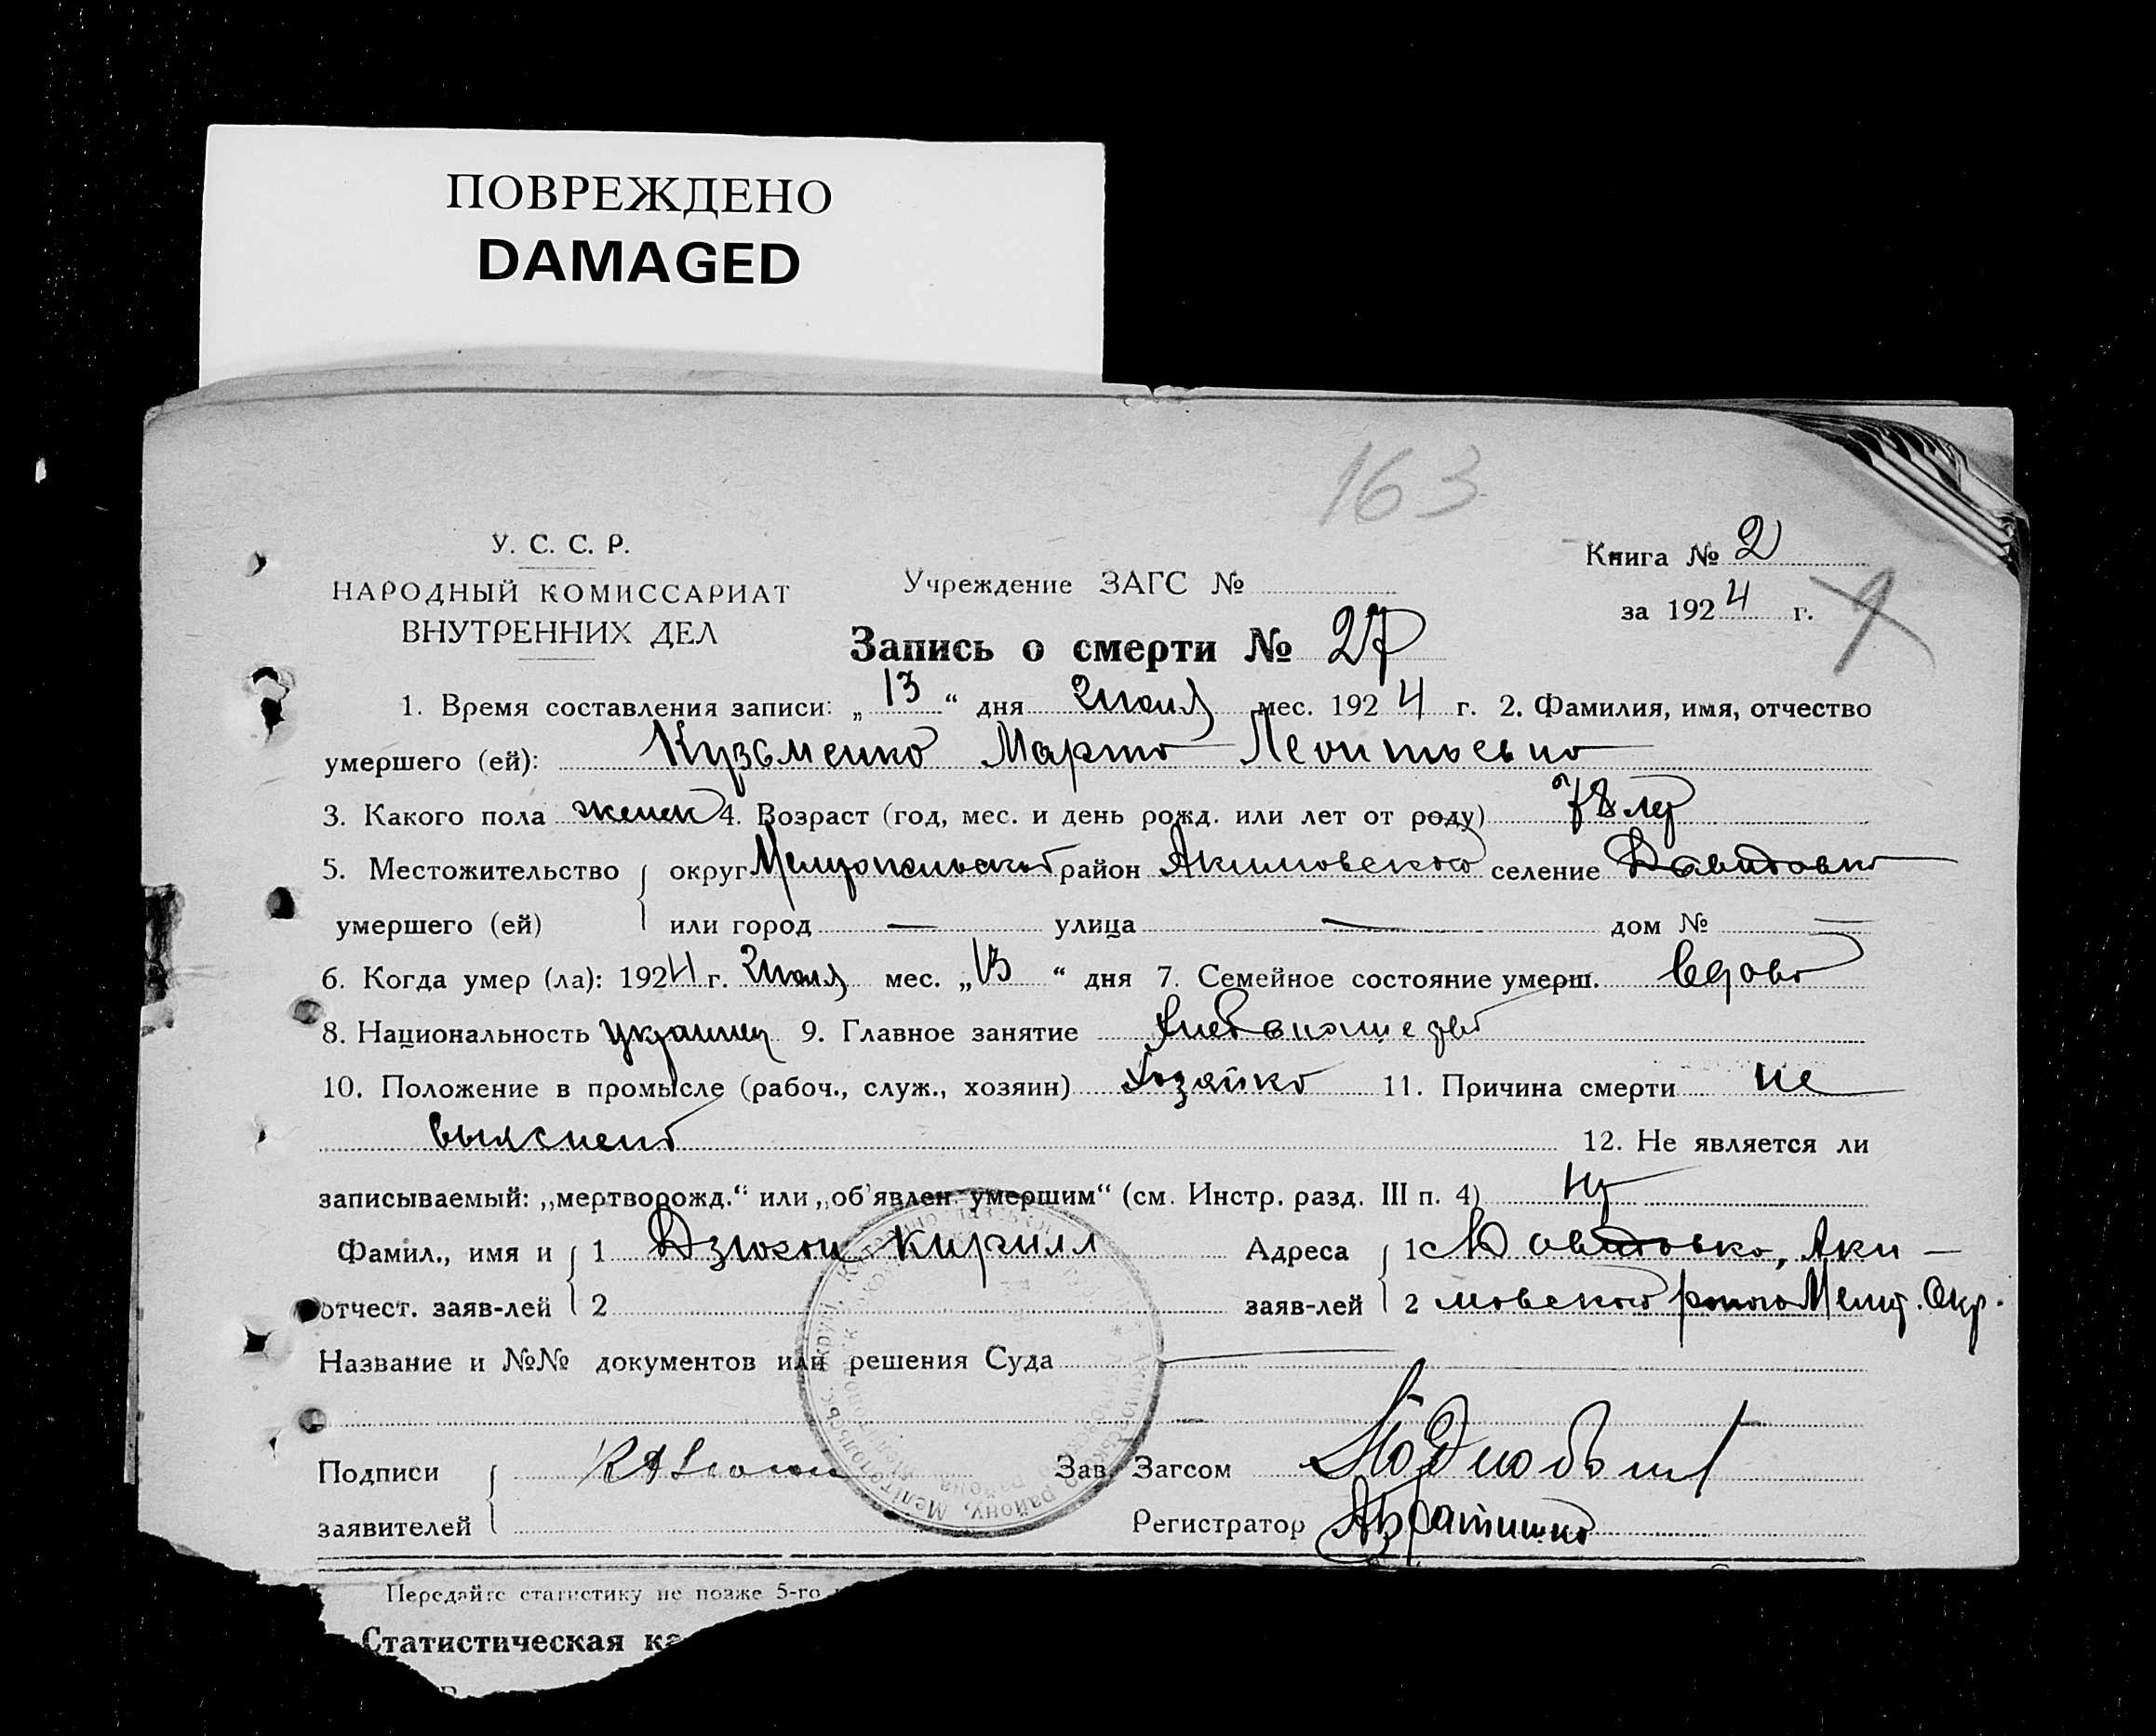 ПОВРЕЖДЕНО
DAMAGED
163
У. С. С. Р.
НАРОДНЫЙ КОМИССАРИАТ
ВНУТРЕННИХ ДЕЛ
Учреждение ЗАГС №
Книга № 2
за 1924 г.
Запись о смерти № 27
1. Время составления записи: „13“ дня Июля мес. 1924 г. 2. Фамилия, имя, отчество
умершего (ей): Кузьменко Марта Леонтьевна
3. Какого пола женск 4. Возраст (год, мес. и день рожд. или лет от роду) 78 лет
5. Местожительство округ Мелитопольский район Акимовского селение Давидовка
умершего (ей) или город — улица — дом № —
6. Когда умер (ла): 1924 г. Июля мес. „13“ дня 7. Семейное состояние умерш. вдова
8. Национальность украинц 9. Главное занятие хлебопашество
10. Положение в промысле (рабоч., служ., хозяин) хозяйка 11. Причина смерти не
выяснена
12. Не является ли
записываемый: „мертворожд.“ или „об'явлен. умершим“ (см. Инстр. разд. III п. 4) нет
Фамил., имя и 1 Дзюган Кирилл Адреса 1 Давидовка, Аки-
отчест. заяв-лей 2 заяв-лей 2 мовского района Мелит. Окр.
Название и №№ документов или решения Суда
Подписи Зав. Загсом
заявителей Регистратор
Передайте статистику не позже 5-го
Статистическая ка